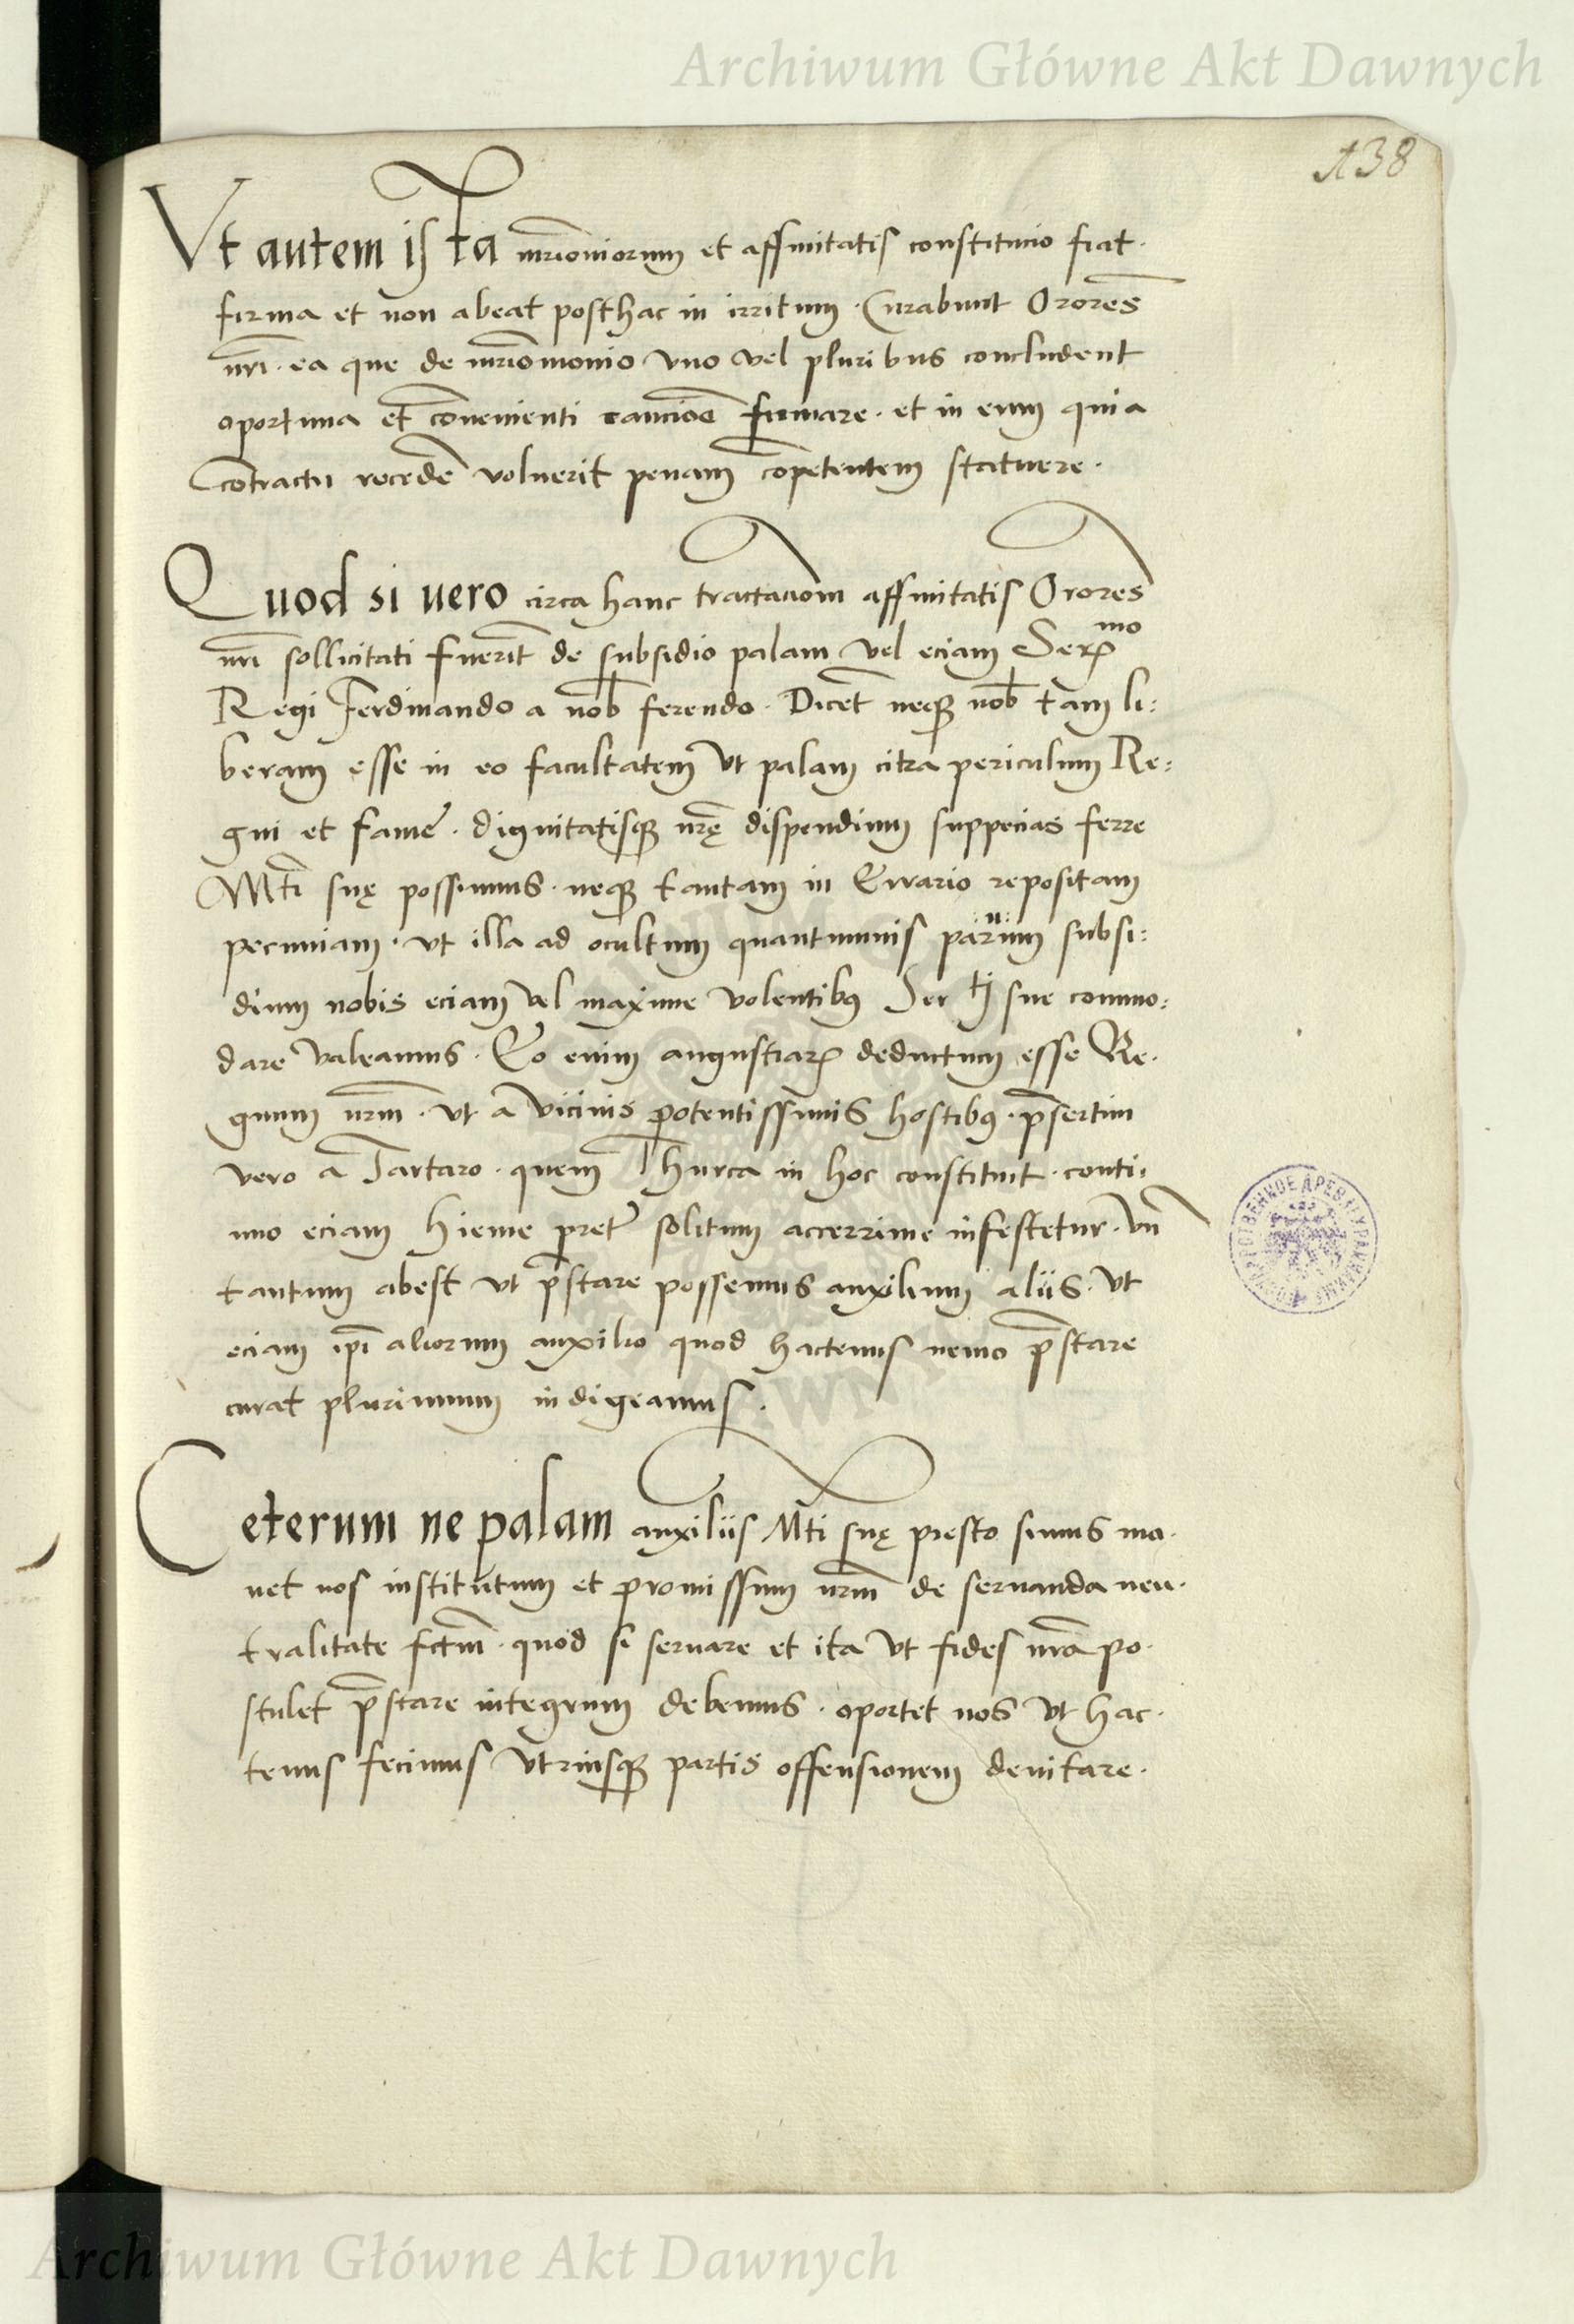 Archiwum Główne Akt Dawnych
138
Vt autem ista mr̄imoniorum et affinitatis constitucio fiat.
firma et non abeat posthac in irritum. Curabunt Orores
nr̄i. ea que de mr̄iomonio vno vel pluribus concludent
oportuna et convenienti caucioe firmare. et in eum qui a
Contractu recedē voluerit penam competentem statuere.
Quod si uero circa hanc tractacionm affinitatis Orores
nr̄i sollicitati fuerīt de subsidio palam vel eciam Sermo
Regi Ferdinando a nob ferendo. Dicēt neqʒ nob tam li:
beram esse in eo facultatem vt palam citra periculum Re:
gni et fame. dignitatisqʒ nr̄ę dispendium suppecias ferre
Mti suę possimus. neqʒ tantam in Errario repositam
pecuniam. vt illa ad ocultum quantumuis paruum subsi:
dium nobis eciam vel maxime volentibꝰ Ser tj sue commo:
dare valeamus. Eo enim angustiarꝝ deductum esse Re.
gnum nr̄m. vt a vicinis potentissimis hostibꝰ. p̄sertim
vero a Tartaro. quem Thurca in hoc constituit. conti,
nuo eciam hieme preter solitum accerrime infestetur. vn̄
tantum abest vt p̄stare possemus auxilium aliis. vt
eciam ip̄i aliorum auxilio quod hactenus nemo p̄stare
curat plurimum indigeamus.
Ceterum ne palam auxiliis Mti suę presto simus mo.
uet nos institutum et promissum nr̄m de seruanda neu.
tralitate fctm̄. quod si seruare et ita vt fides nr̄a po.
stulet p̄stare integrum debemus. oportet nos vt hac.
tenus fecimus vtriusqʒ partis offensionem deuitare.
Archiwum Główne Akt Dawnych